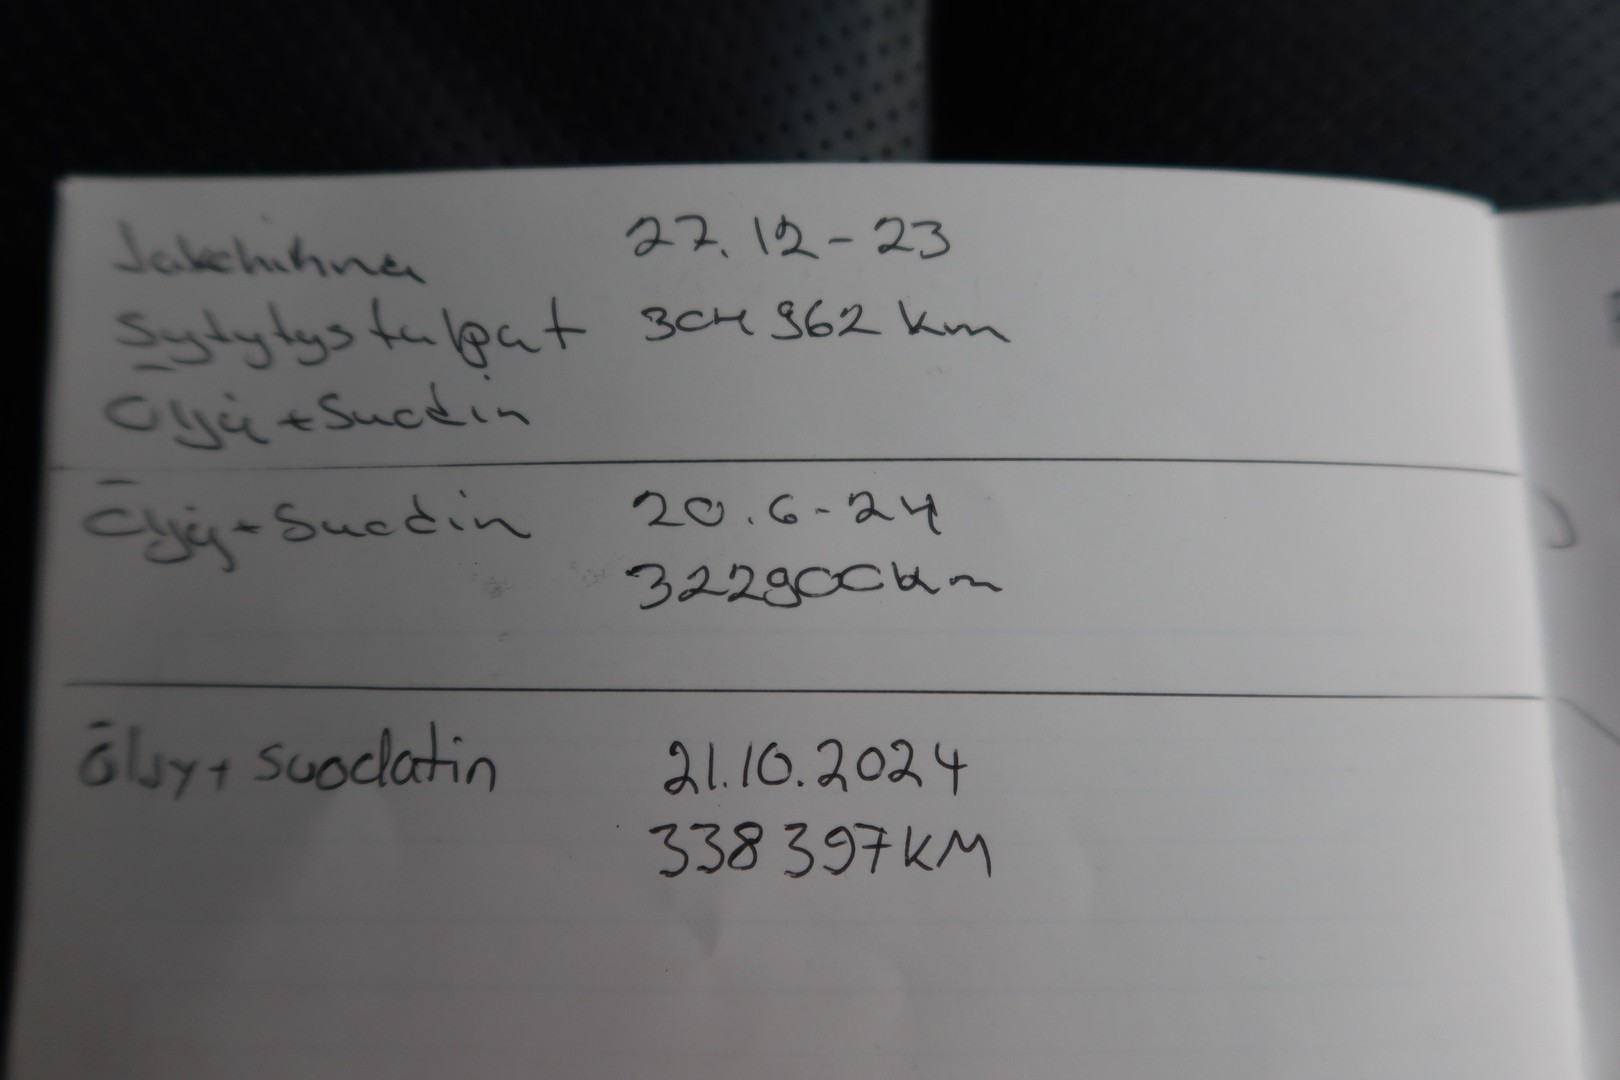 Jakohihna 27.12-23
Sytytystulpat 304 962 km
Öljy + Suodin
Öljy + Suodin 20.6-24
322900km
ōljy + suodatin 21.10.2024
338 397KM